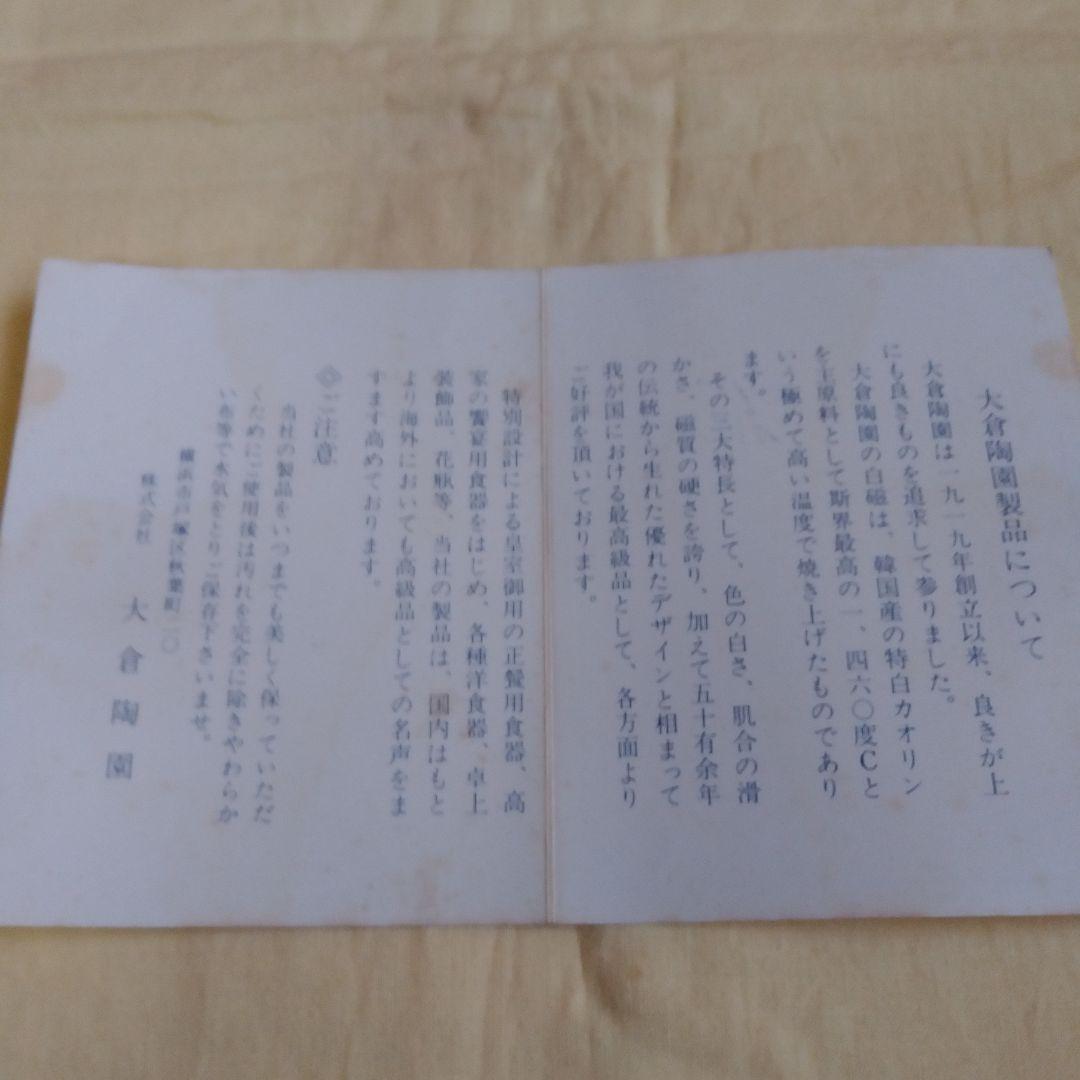 大倉陶園製品について
大倉陶園は一九一九年創立以来、良きが上
にも良きものを追求して参りました。
大倉陶園の白磁は、韓国産の特白カオリン
を主原料として斯界最高の一、四六〇度Cと
いう極めて高い温度で焼き上げたものであり
ます。
その三大特長として、色の白さ、肌合の滑
かさ、磁質の硬さを誇り、加えて五十有余年
の伝統から生れた優れたデザインと相まって
我が国における最高級品として、各方面より
ご好評を頂いております。
特別設計による皇室御用の正餐用食器、高
家の饗宴用食器をはじめ、各種洋食器、卓上
装飾品、花瓶等、当社の製品は、国内はもと
より海外においても高級品としての名声をま
すます高めております。
ご注意
当社の製品をいつまでも美しく保っていただ
くためにご使用後は汚れを完全に除きやわらか
い布等で水気をとりご保存下さいませ。
横浜市戸塚区秋葉町二〇
株式会社 大倉陶園